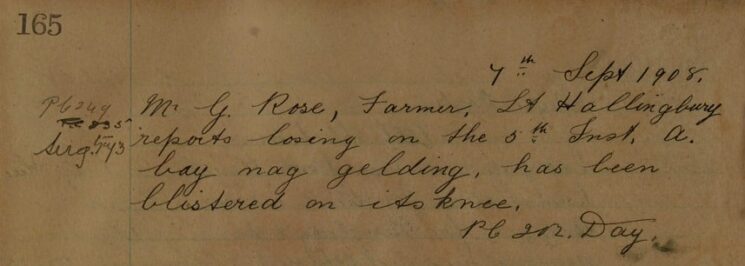 165
7th Sept 1908.
PC 249
Mr G. Rose, Farmer, Lt Hallingbury
235
reports losing on the 5th Inst, a.
Serg.
bay nag gelding, has been
blistered on its knee.
PC 202. Day.